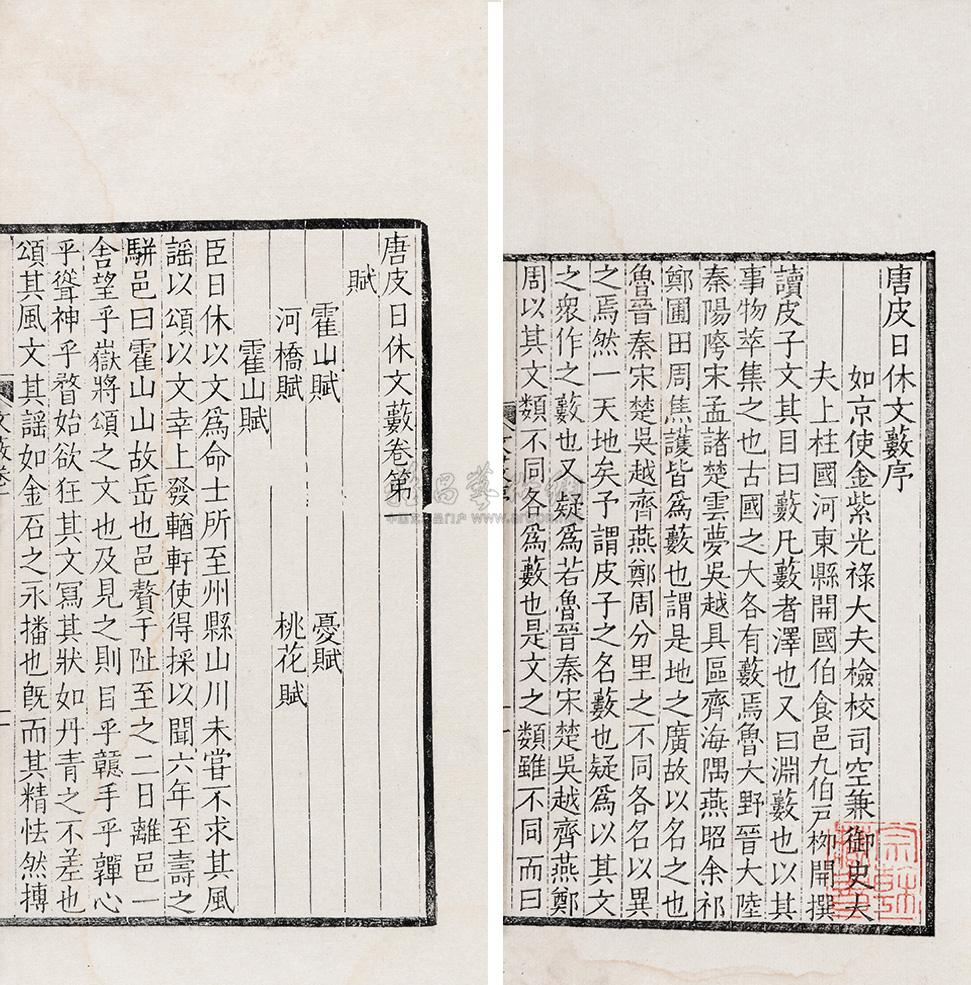 唐皮日休文藪序
如京使金紫光祿大夫檢校司空兼御史大
夫上柱國河東縣開國伯食邑九伯戶柳開撰
讀皮子文其目曰藪凡藪者澤也又曰淵藪也以其
事物萃集之也古國之大各有藪焉魯大野晉大陸
秦陽陓宋孟諸楚雲夢吳越具區齊海隅燕昭余祁
鄭圃田周焦護皆爲藪也謂是地之廣故以名之也
魯晉秦宋楚吳越齊燕鄭周分里之不同各名以異
之焉然一天地矣予謂皮子之名藪也疑爲以其文
之衆作之藪也又疑爲若魯晉秦宋楚吳越齊燕鄭
周以其文類不同各爲藪也是文之類雖不同而曰
唐皮日休文藪卷第一
賦
霍山賦 憂賦
河橋賦 桃花賦
霍山賦
臣日休以文爲命士所至州縣山川未嘗不求其風
謡以頌以文幸上發輶軒使得採以聞六年至壽之
駢邑曰霍山山故岳也邑贅于阯至之二日離邑一
舍望乎嶽將頌之文也及見之則目乎贛手乎韗心
乎聳神乎瞀始欲狂其文寫其狀如丹青之不差也
頌其風文其謡如金石之永播也旣而其精怯然搏